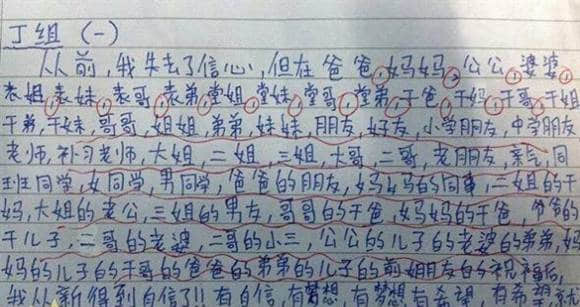 丁组（一）
从前，我失去了信心，但在爸爸，妈妈，公公，婆婆，
表姐，表妹，表哥，表弟，堂姐，堂妹，堂哥，堂弟，干爸，干妈，干哥，干姐
干弟，干妹，哥哥，姐姐，弟弟，妹妹，朋友，好友，小学朋友，中学朋友
老师，补习老师，大姐，二姐，三姐，大哥，二哥，老朋友，亲气，同
班同学，女同学，男同学，爸爸的朋友，妈妈的同事，二姐的干
妈，大姐的老公，三姐的男友，哥哥的干爸，妈妈的干爸，爷爷的
干儿子，二哥的老婆，二哥的小三，公公的儿子的老婆的弟弟，妈
妈的儿子的干哥的爸爸的弟弟的儿子的前朋友的祝福后，
我从新得到自信了!! 有自信，有梦想，有梦想有希望，有希望